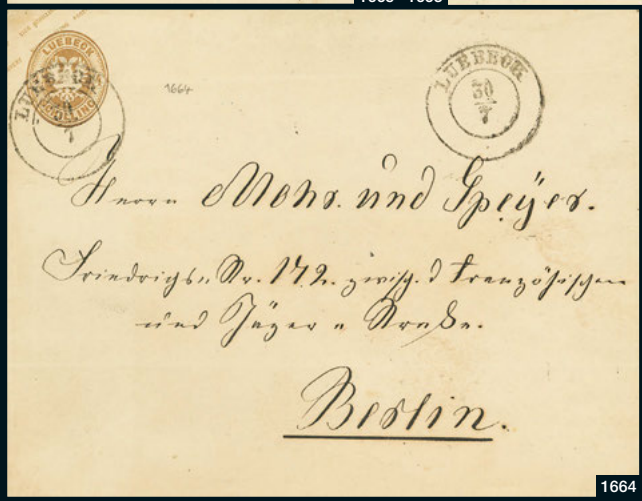 LUEBECK
SCHILLING
LUEBECK
LUEBECK
30
7
1664
Herrn Mohr. und Speÿer.
Friedrigs„ Str. 172. zwisch. d Französischen
und Jäger „ Straße.
Berlin.
1664